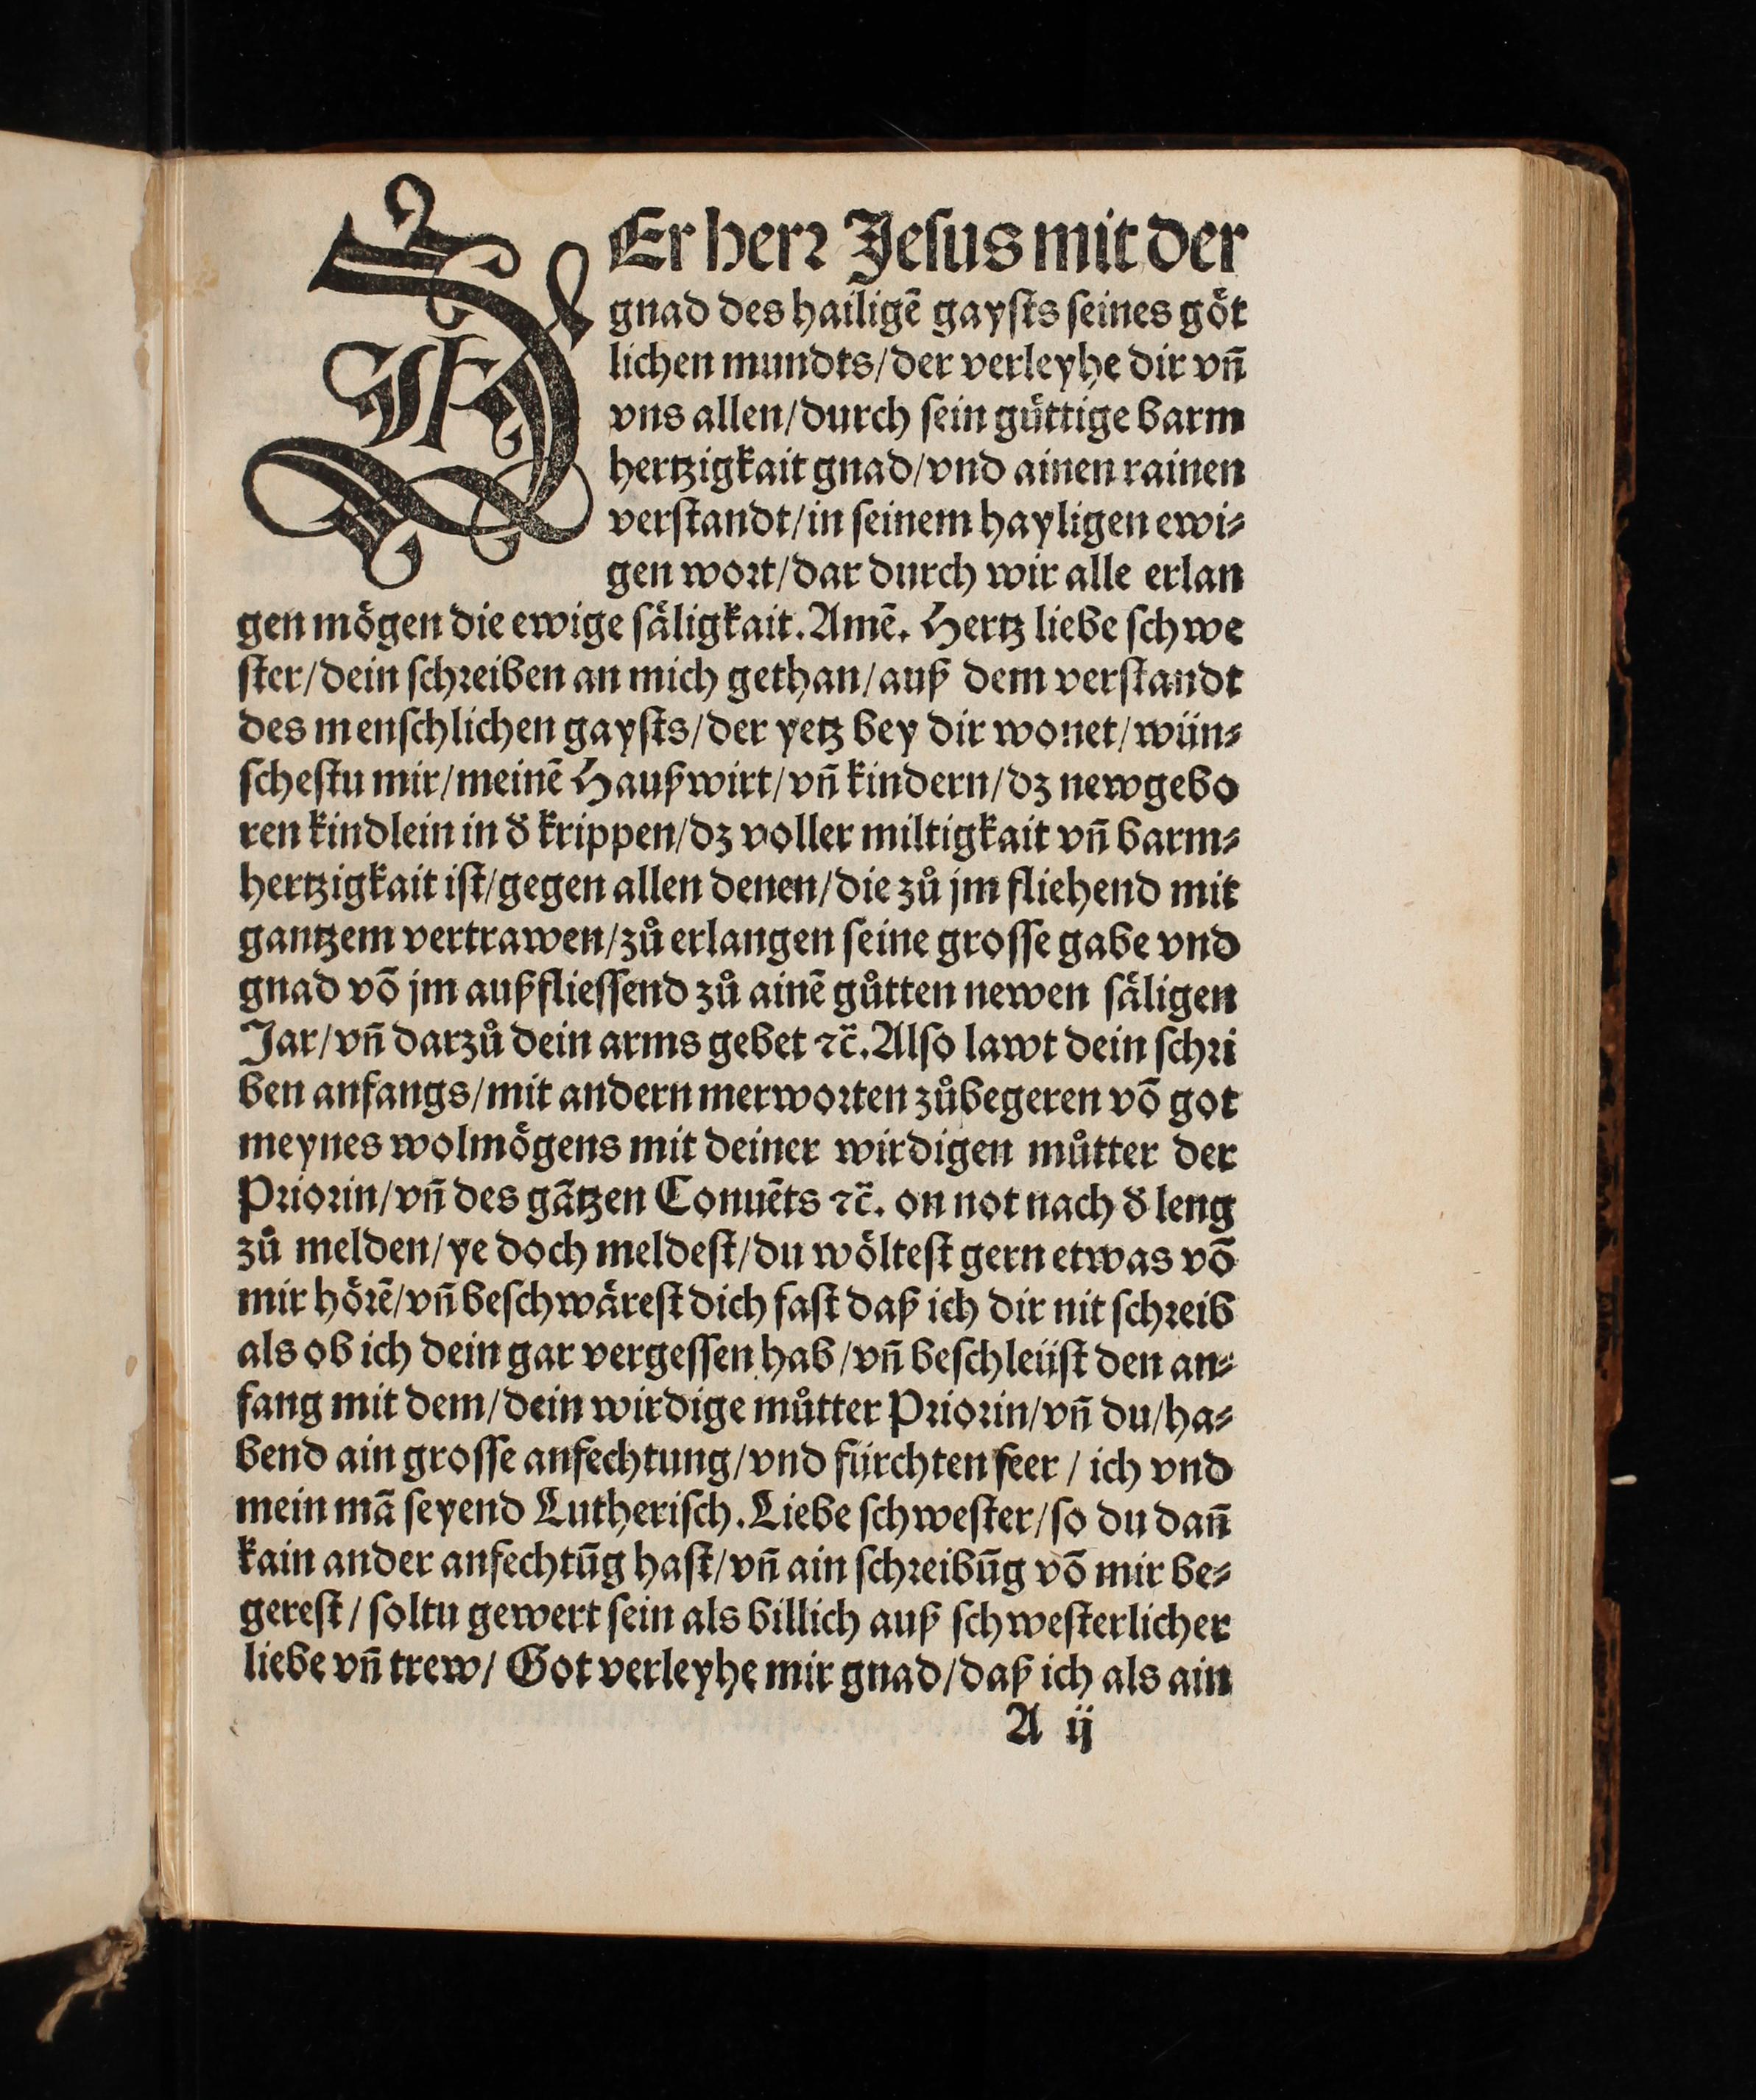 DEr herr Jeſus mit der
gnad des hailigē gayſts ſeines goͤt
lichen mundts/der verleyhe dir vñ
vns allen/durch ſein guͤttige barm
hertzigkait gnad/vnd ainen rainen
verſtandt/in ſeinem hayligen ewi⸗
gen woꝛt/dar durch wir alle erlan
gen moͤgen die ewige ſaͤligkait. Amē. Hertz liebe ſchwe
ſter/dein ſchꝛeiben an mich gethan/auß dem verſtandt
des menſchlichen gayſts/der yetz bey dir wonet/wün⸗
ſcheſtu mir/meinē Haußwirt/vñ kindern/dz newgebo
ren kindlein in đ krippen/dz voller miltigkait vñ barm⸗
hertzigkait iſt/gegen allen denen/die zuͦ jm fliehend mit
gantzem vertrawen/zuͦ erlangen ſeine groſſe gabe vnd
gnad võ jm außflieſſend zuͦ ainē guͦtten newen ſaͤligen
Jar/vñ darzuͦ dein arms gebet ⁊c̈. Alſo lawt dein ſchꝛi
ben anfangs/mit andern merwoꝛten zuͦbegeren võ got
meynes wolmoͤgens mit deiner wirdigen muͦtter der
Pꝛioꝛin/vñ des gãtzen Conuēts ⁊c̈. on not nach đ leng
zuͦ melden/ye doch meldeſt/du woͤlteſt gern etwas võ
mir hoͤꝛē/vñ beſchwaͤreſt dich faſt daß ich dir nit ſchꝛeib
als ob ich dein gar vergeſſen hab/vñ beſchleüſt den an⸗
fang mit dem/dein wirdige muͦtter Pꝛioꝛin/vñ du/ha⸗
bend ain groſſe anfechtung/vnd fürchten ſeer / ich vnd
mein mã ſeyend Lutheriſch. Liebe ſchweſter/ſo du dañ
kain ander anfechtūg haſt/vñ ain ſchꝛeibūg võ mir be⸗
gereſt / ſoltu gewert ſein als billich auß ſchweſterlicher
liebe vñ trew/ Got verleyhe mir gnad/daß ich als ain
A ij